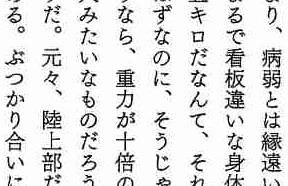 なり、病弱とは縁遠い
まるで看板違いな身体
キロだなんて、それ
はずなのに、そうじゃ
うなら、重力が十倍の
人みたいなものだろう
だ。元々、陸上部だ
る。ぶつかり合いに